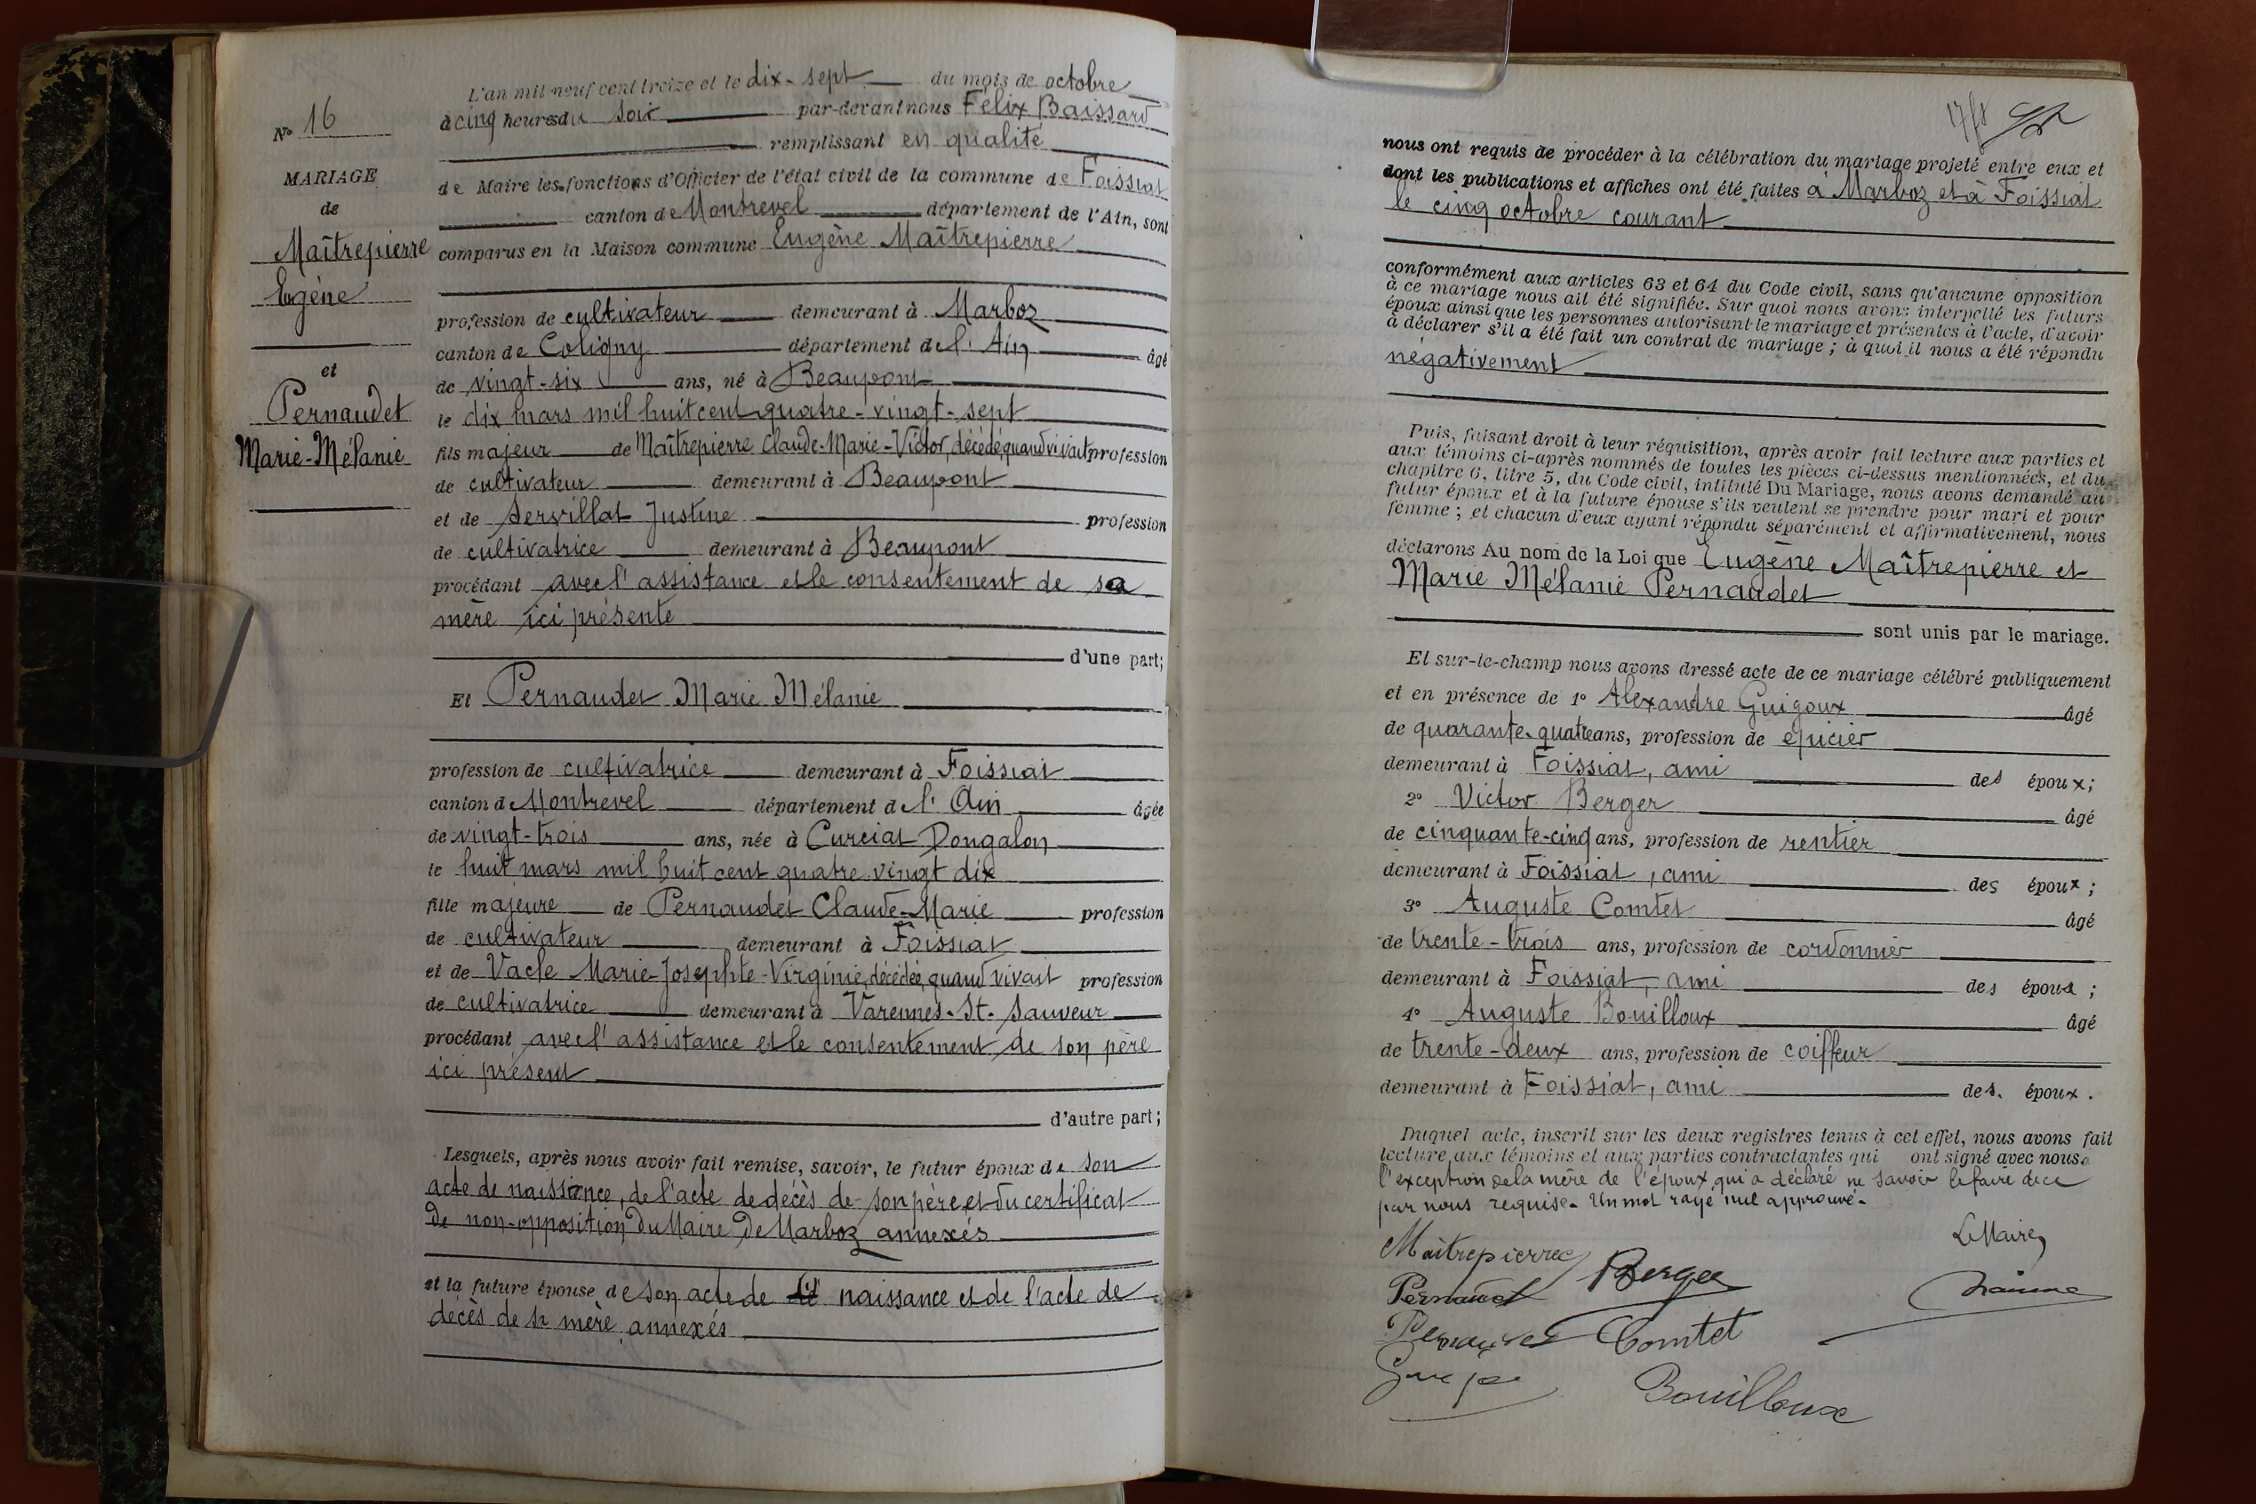 No 16
MARIAGE
de
Maîtrepierre
Eugène
et
Pernaudet
Marie-Mélanie
L'an mil neuf cent treize et le dix-sept du mois de octobre
à cinq heures du soir par-devant nous Félix Baissard
remplissant en qualité
de Maire les fonctions d'Officier de l'état civil de la commune de Foissiat
canton de Montrevel département de l'Ain, sont
comparus en la Maison commune Eugène Maîtrepierre
profession de cultivateur demeurant à Marboz
canton de Coligny département de l'Ain âgé
de vingt-six ans, né à Beaupont
le dix mars mil huit cent quatre-vingt-sept
fils majeur de Maîtrepierre Claude-Marie-Victor, décédé, quand vivait profession
de cultivateur demeurant à Beaupont
et de Servillat Justine profession
de cultivatrice demeurant à Beaupont
procédant avec l'assistance et le consentement de sa
mère ici présente
d'une part;
Et Pernaudet Marie Mélanie
profession de cultivatrice demeurant à Foissiat
canton de Montrevel département de l'Ain âgée
de vingt-trois ans, née à Curciat Dongalon
le huit mars mil huit cent quatre vingt dix
fille majeure de Pernaudet Claude-Marie profession
de cultivateur demeurant à Foissiat
et de Vacle Marie-Josephte-Virginie, décédée, quand vivait profession
de cultivatrice demeurant à Varennes-St-Sauveur
procédant avec l'assistance et le consentement de son père
ici présent
d'autre part;
Lesquels, après nous avoir fait remise, savoir, le futur époux de son
acte de naissance, de l'acte de décès de son père et du certificat
de non-opposition du Maire de Marboz annexés
et la future épouse de son acte de naissance et de l'acte de
décès de sa mère annexés
nous ont requis de procéder à la célébration du mariage projeté entre eux et
dont les publications et affiches ont été faites à Marboz et à Foissiat
le cinq octobre courant
conformément aux articles 63 et 64 du Code civil, sans qu'aucune opposition
à ce mariage nous ait été signifiée. Sur quoi nous avons interpellé les futurs
époux ainsi que les personnes autorisant le mariage et présentes à l'acte, d'avoir
à déclarer s'il a été fait un contrat de mariage; à quoi il nous a été répondu
négativement
Puis, faisant droit à leur réquisition, après avoir fait lecture aux parties et
aux témoins ci-après nommés de toutes les pièces ci-dessus mentionnées, et du
chapitre 6, titre 5, du Code civil, intitulé Du Mariage, nous avons demandé au
futur époux et à la future épouse s'ils veulent se prendre pour mari et pour
femme; et chacun d'eux ayant répondu séparément et affirmativement, nous
déclarons Au nom de la Loi que Eugène Maîtrepierre et
Marie Mélanie Pernaudet
sont unis par le mariage.
Et sur-le-champ nous avons dressé acte de ce mariage célébré publiquement
et en présence de 1° Alexandre Guigoux âgé
de quarante-quatre ans, profession de épicier
demeurant à Foissiat, ami des époux;
2° Victor Berger âgé
de cinquante-cinq ans, profession de rentier
demeurant à Foissiat, ami des époux;
3° Auguste Comtet âgé
de trente-trois ans, profession de cordonnier
demeurant à Foissiat, ami des époux;
4° Auguste Bouilloux âgé
de trente-deux ans, profession de coiffeur
demeurant à Foissiat, ami des époux.
Duquel acte, inscrit sur les deux registres tenus à cet effet, nous avons fait
lecture aux témoins et aux parties contractantes qui ont signé avec nous à
l'exception de la mère de l'époux qui a déclaré ne savoir le faire de ce
par nous requise. Un mot rayé nul approuvé.
Le Maire,
Maîtrepierre
Berger
Pernaudet
Pernaudet
Comtet
Bouilloux